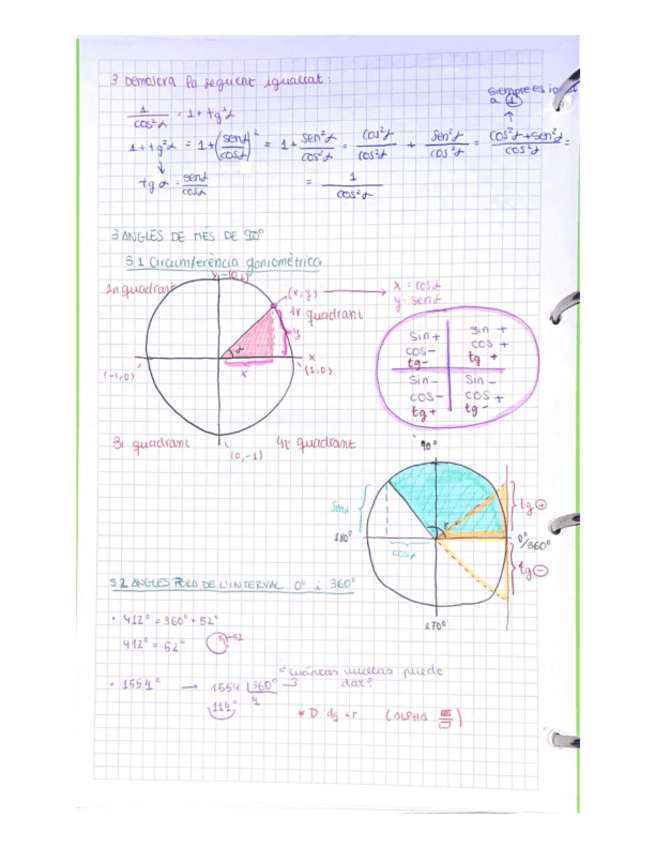 3 Demostra la següent igualtat:
siempre es igual
a 1
1/cos²α = 1 + tg²α
1 + tg²α = 1 + (senα/cosα)² = 1 + sen²α/cos²α = cos²α/cos²α + sen²α/cos²α = cos²α + sen²α/cos²α =
tg α = senα/cosα
= 1/cos²α
3 ANGLES DE MÉS DE 90°
3.1 Circumferència goniomètrica
2n quadrant
(x,y)
x = cosα
y = senα
1r quadrant
y
α
x
x
(-1,0)
(1,0)
sin +
cos -
tg -
sin +
cos +
tg +
sin -
cos -
tg +
sin -
cos +
tg -
3r quadrant
4t quadrant
(0,-1)
90°
tg +
180°
0°/360°
cosα
tg -
3.2 ANGLES FORA DE L'INTERVAL 0° i 360°
270°
• 412° = 360° + 52°
412° = 52°
52
¿cuántas vueltas puede
dar?
• 1554° → 1554 360°
4
114°
* D = dq + r (ALPHA